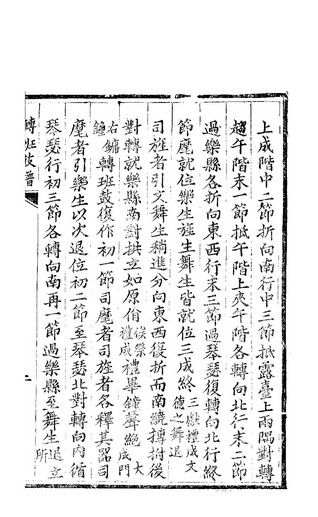 上成階中二節折向南行中三節抵露臺上兩隅對轉
趨午階末一節抵午階上夾午階各轉向北行末二節
過樂縣各折向東西行末三節過琴瑟復轉向北行終
節麾就位樂生旌生舞生皆就位三成終三獻禮成文德之舞退
司旌者引文舞生稍進分向東西復折而南繞搏拊後
對轉就樂縣南對拱立如原佾俟樂禮成禮畢鐘聲絶大成門
右鏞鐘轉班鼓復作初一節司麾者司旌者各釋其器司
麾者引樂生以次退位初二節至琴瑟北對轉向內循
琴瑟行初三節各轉向南再一節過樂縣至舞生退立所
轉班鼓譜